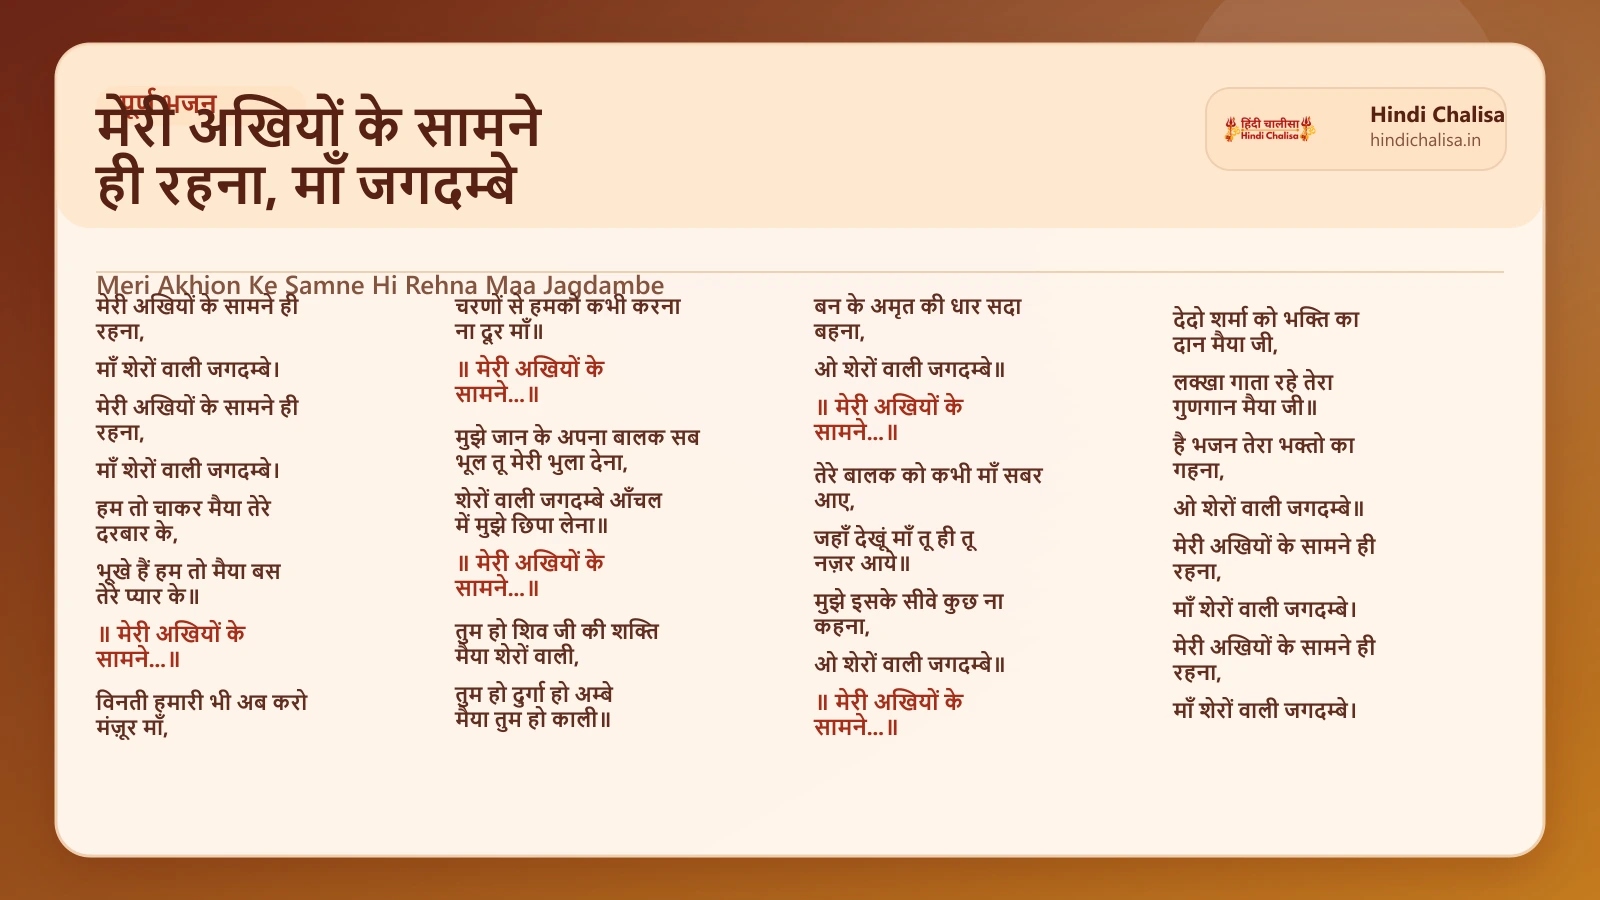 पूर्ण भजन
मेरी अखियों के सामने
ही रहना, माँ जगदम्बे
हिंदी चालीसा
Hindi Chalisa
Hindi Chalisa
hindichalisa.in
Meri Akhion Ke Samne Hi Rehna Maa Jagdambe
मेरी अखियों के सामने ही
रहना,
माँ शेरों वाली जगदम्बे।
मेरी अखियों के सामने ही
रहना,
माँ शेरों वाली जगदम्बे।
हम तो चाकर मैया तेरे
दरबार के,
भूखे हैं हम तो मैया बस
तेरे प्यार के॥
॥ मेरी अखियों के
सामने...॥
विनती हमारी भी अब करो
मंज़ूर माँ,
चरणों से हमको कभी करना
ना दूर माँ॥
॥ मेरी अखियों के
सामने...॥
मुझे जान के अपना बालक सब
भूल तू मेरी भुला देना,
शेरों वाली जगदम्बे आँचल
में मुझे छिपा लेना॥
॥ मेरी अखियों के
सामने...॥
तुम हो शिव जी की शक्ति
मैया शेरों वाली,
तुम हो दुर्गा हो अम्बे
मैया तुम हो काली॥
बन के अमृत की धार सदा
बहना,
ओ शेरों वाली जगदम्बे॥
॥ मेरी अखियों के
सामने...॥
तेरे बालक को कभी माँ सबर
आए,
जहाँ देखूं माँ तू ही तू
नज़र आये॥
मुझे इसके सीवे कुछ ना
कहना,
ओ शेरों वाली जगदम्बे॥
॥ मेरी अखियों के
सामने...॥
देदो शर्मा को भक्ति का
दान मैया जी,
लक्खा गाता रहे तेरा
गुणगान मैया जी॥
है भजन तेरा भक्तो का
गहना,
ओ शेरों वाली जगदम्बे॥
मेरी अखियों के सामने ही
रहना,
माँ शेरों वाली जगदम्बे।
मेरी अखियों के सामने ही
रहना,
माँ शेरों वाली जगदम्बे।